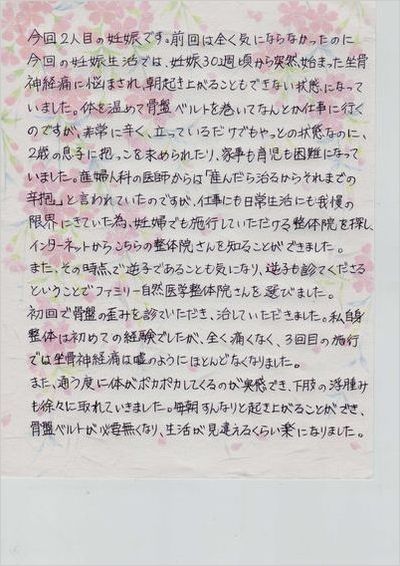 今回2人目の妊娠です。前回は全く気にならなかったのに
今回の妊娠生活では、妊娠30週頃から突然始まった坐骨
神経痛に悩まされ、朝起き上がることもできない状態になって
いました。体を温めて骨盤ベルトを巻いてなんとか仕事に行く
のですが、非常に辛く、立っているだけでもやっとの状態なのに、
2歳の息子に抱っこを求められたり、家事も育児も困難になって
いました。産婦人科の医師からは「産んだら治るからそれまでの
辛抱。」と言われていたのですが、仕事にも日常生活にも我慢の
限界にきていた為、妊婦でも施行していただける整体院を探し、
インターネットからこちらの整体院さんを知ることができました。
また、その時点で逆子であることも気になり、逆子も診てくださる
ということでファミリー自然医学整体院さんを選びました。
初回で骨盤の歪みを診ていただき、治していただきました。私自身
整体は初めての経験でしたが、全く痛くなく、3回目の施行
では坐骨神経痛は嘘のようにほとんどなくなりました。
また、通う度に体がポカポカしてくるのが実感でき、下肢の浮腫み
も徐々に取れていきました。毎朝すんなりと起き上がることができ、
骨盤ベルトが必要無くなり、生活が見違えるくらい楽になりました。